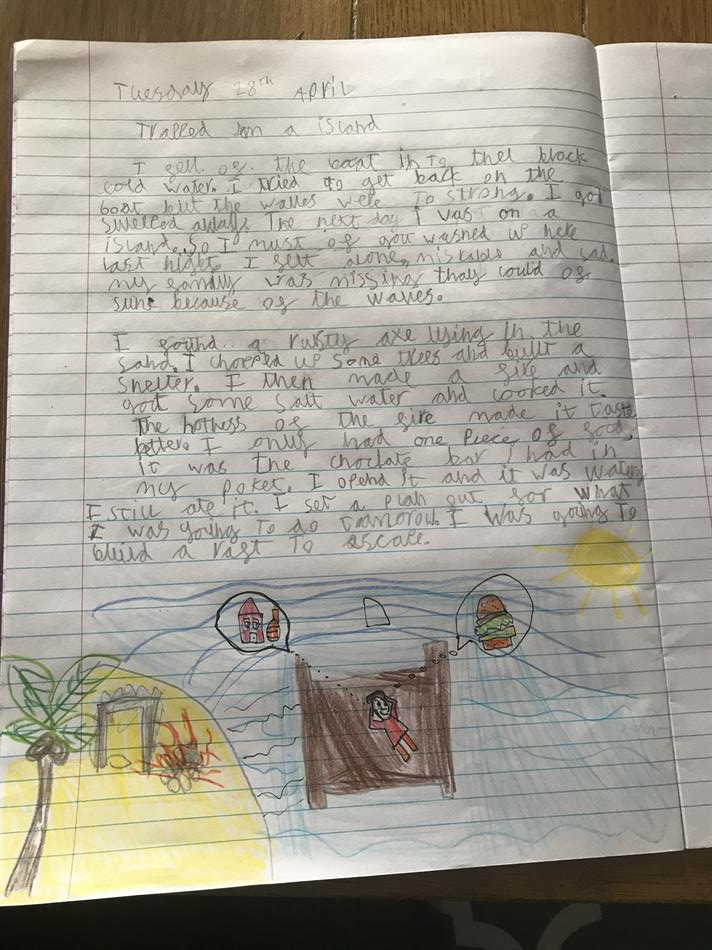 Tuesday 28th April
Trapped on a island
I fell of the boat in to the black
cold water. I tried to get back on the
boat but the waves were to strong. I got
swelled away. The next day I was on a
island. So I must of got washed up here
last night I felt alone, misrable and sad.
my family was missing thay could of
sunk because of the waves.
I found a rusty axe lying in the
sand. I chopped up some trees and built a
shelter. I then made a fire and
got some salt water and cooked it.
The hotness of the fire made it taste
better. I only had one piece of food,
it was the choclate bar I had in
my poket. I opend it and it was watery
I still ate it. I set a plan out for what
I was going to do tamorow. I was going to
build a raft to escape.